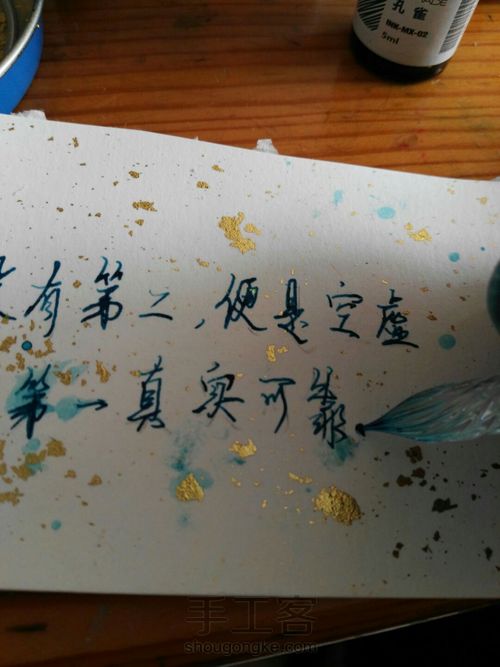 孔雀
INK-MX-02
5ml
有第二,便是空虚
第一真实可靠
手工客
shougongke.com